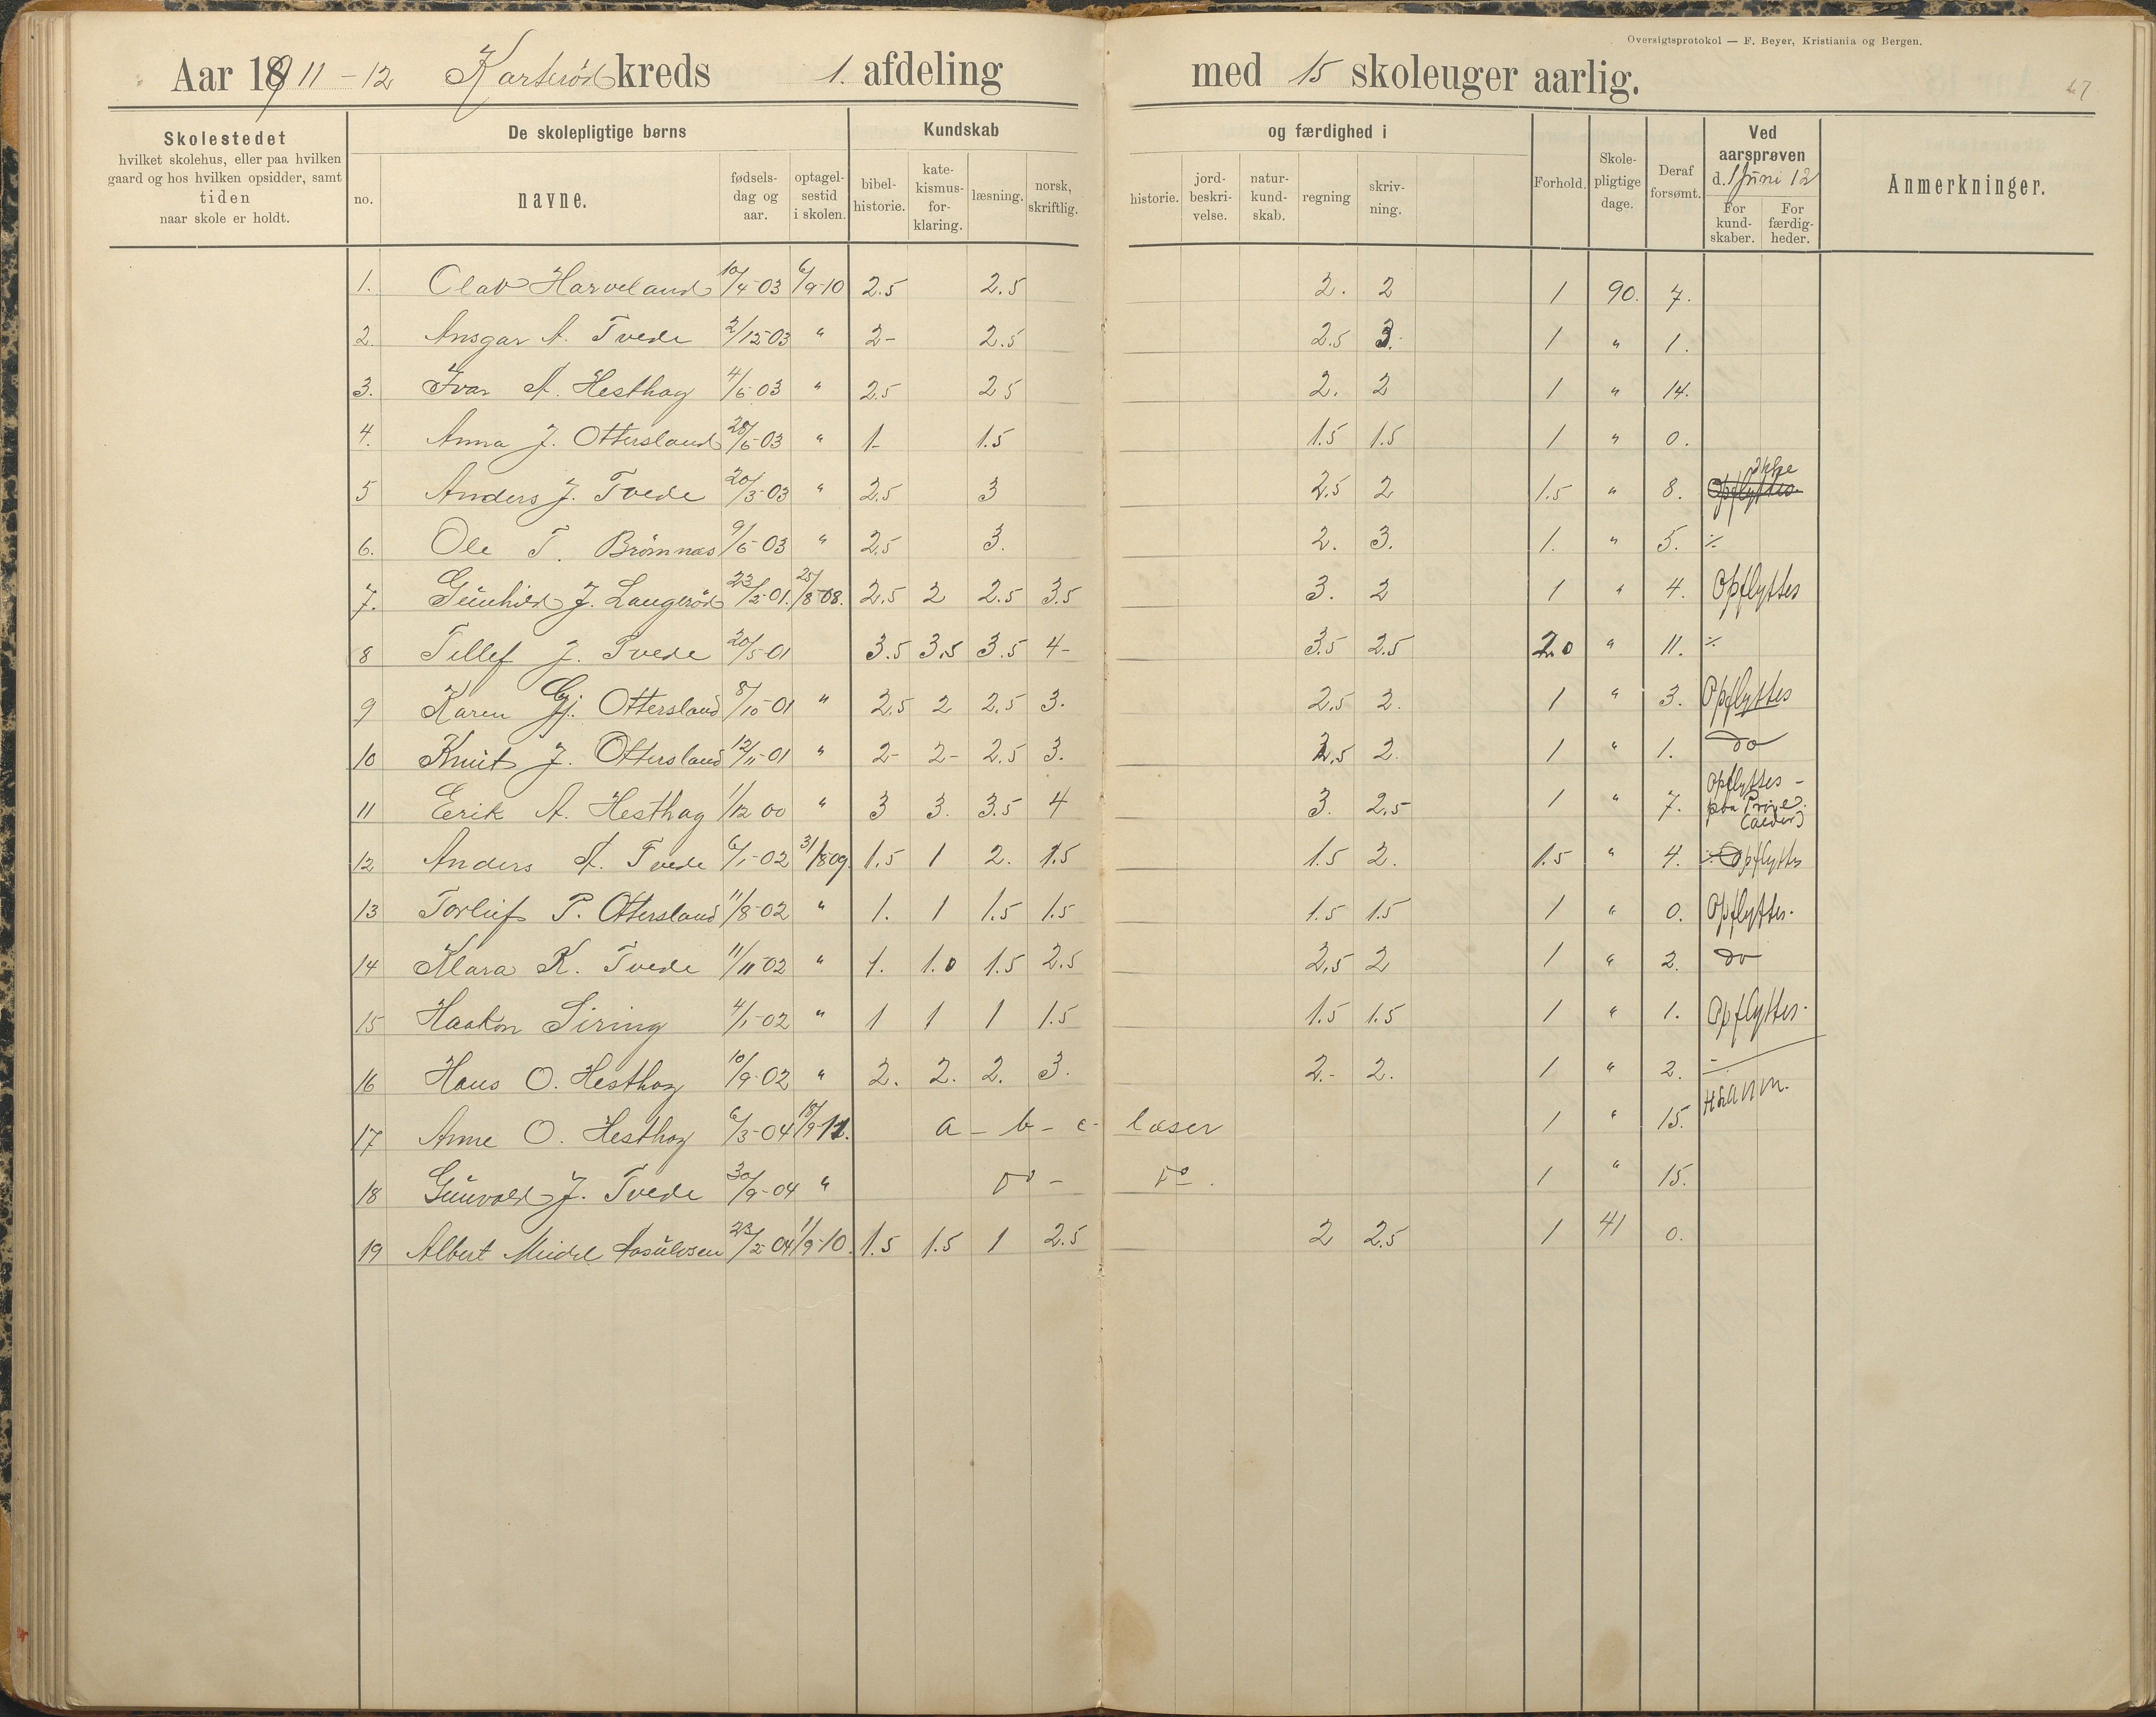 Oversigtsprotokol — F. Beyer, Kristiania og Bergen.
Aar 1911-12 Karterød kreds 1. afdeling med 15 skoleuger aarlig.
27
Skolestedet
hvilket skolehus, eller paa hvilken
gaard og hos hvilken opsidder, samt
tiden
naar skole er holdt.
De skolepligtige børns
no. navne. fødsels-dag og aar. optagel-sestid i skolen.
Kundskab og færdighed i
bibel-historie. kate-kismus-for-klaring. læsning. norsk, skriftlig. historie. jord-beskri-velse. natur-kund-skab. regning skriv-ning.
Forhold. Skole-pligtige dage. Deraf forsømt.
Ved aarsprøven d. 1 Juni 12
For kund-skaber. For færdig-heder.
Anmerkninger.
1. Olav Harveland 10/4-03 6/9-10 2.5 2.5 2. 2 1 90. 7.
2. Ansgar A. Tvede 2/12-03 " 2- 2.5 2.5 3. 1 " 1.
3. Ivar A. Hesthag 4/6-03 " 2.5 2.5 2. 2 1 " 14.
4. Anna J. Ottersland 28/6-03 " 1- 1.5 1.5 1.5 1 " 0.
5 Anders J. Tvede 20/3-03 " 2.5 3 2.5 2 1.5 " 8. Opflyttes ikke
6. Ole T. Brømnæs 9/6-03 " 2.5 3. 2. 3. 1. " 5. ÷
7. Gunhild J. Langerød 23/2-01. 25/8-08. 2.5 2 2.5 3.5 3. 2 1 " 4. Opflyttes
8 Tellef J. Tvede 20/5-01 3.5 3.5 3.5 4- 3.5 2.5 2.0 " 11. ÷
9 Karen Gj. Ottersland 8/10-01 " 2.5 2 2.5 3. 2.5 2. 1 " 3. Opflyttes
10 Knut J. Ottersland 12/11-01 " 2- 2- 2.5 3. 2.5 2. 1 " 1. do
11 Eerik A. Hesthag 1/12 00 " 3 3. 3.5 4 3. 2.5 1 " 7. Opflyttes - paa Prøve.
12 Anders A. Tvede 6/1-02 31/8-09. 1.5 1 2. 1.5 1.5 2. 1.5 " 4. Opflyttes
13 Torleif P. Ottersland 11/8-02 " 1. 1 1.5 1.5 1.5 1.5 1 " 0. Opflyttes.
14 Klara K. Tvede 11/11-02 " 1. 1.0 1.5 2.5 2.5 2 1 " 2. do
15 Haakon Siring 4/1-02 " 1 1 1 1.5 1.5 1.5 1 " 1. Opflyttes.
16 Hans O. Hesthag 10/9-02 " 2. 2. 2. 3. 2.- 2. 1 " 2. -
17 Anne O. Hesthag 6/3-04 18/9-11. a - b - c - læser 1 " 15.
18 Gunvald J. Tvede 30/9-04 " do - do. 1 " 15.
19 Albert Meidel Aasulvsen 23/2-04 1/9-10. 1.5 1.5 1 2.5 2 2.5 1 41 0.